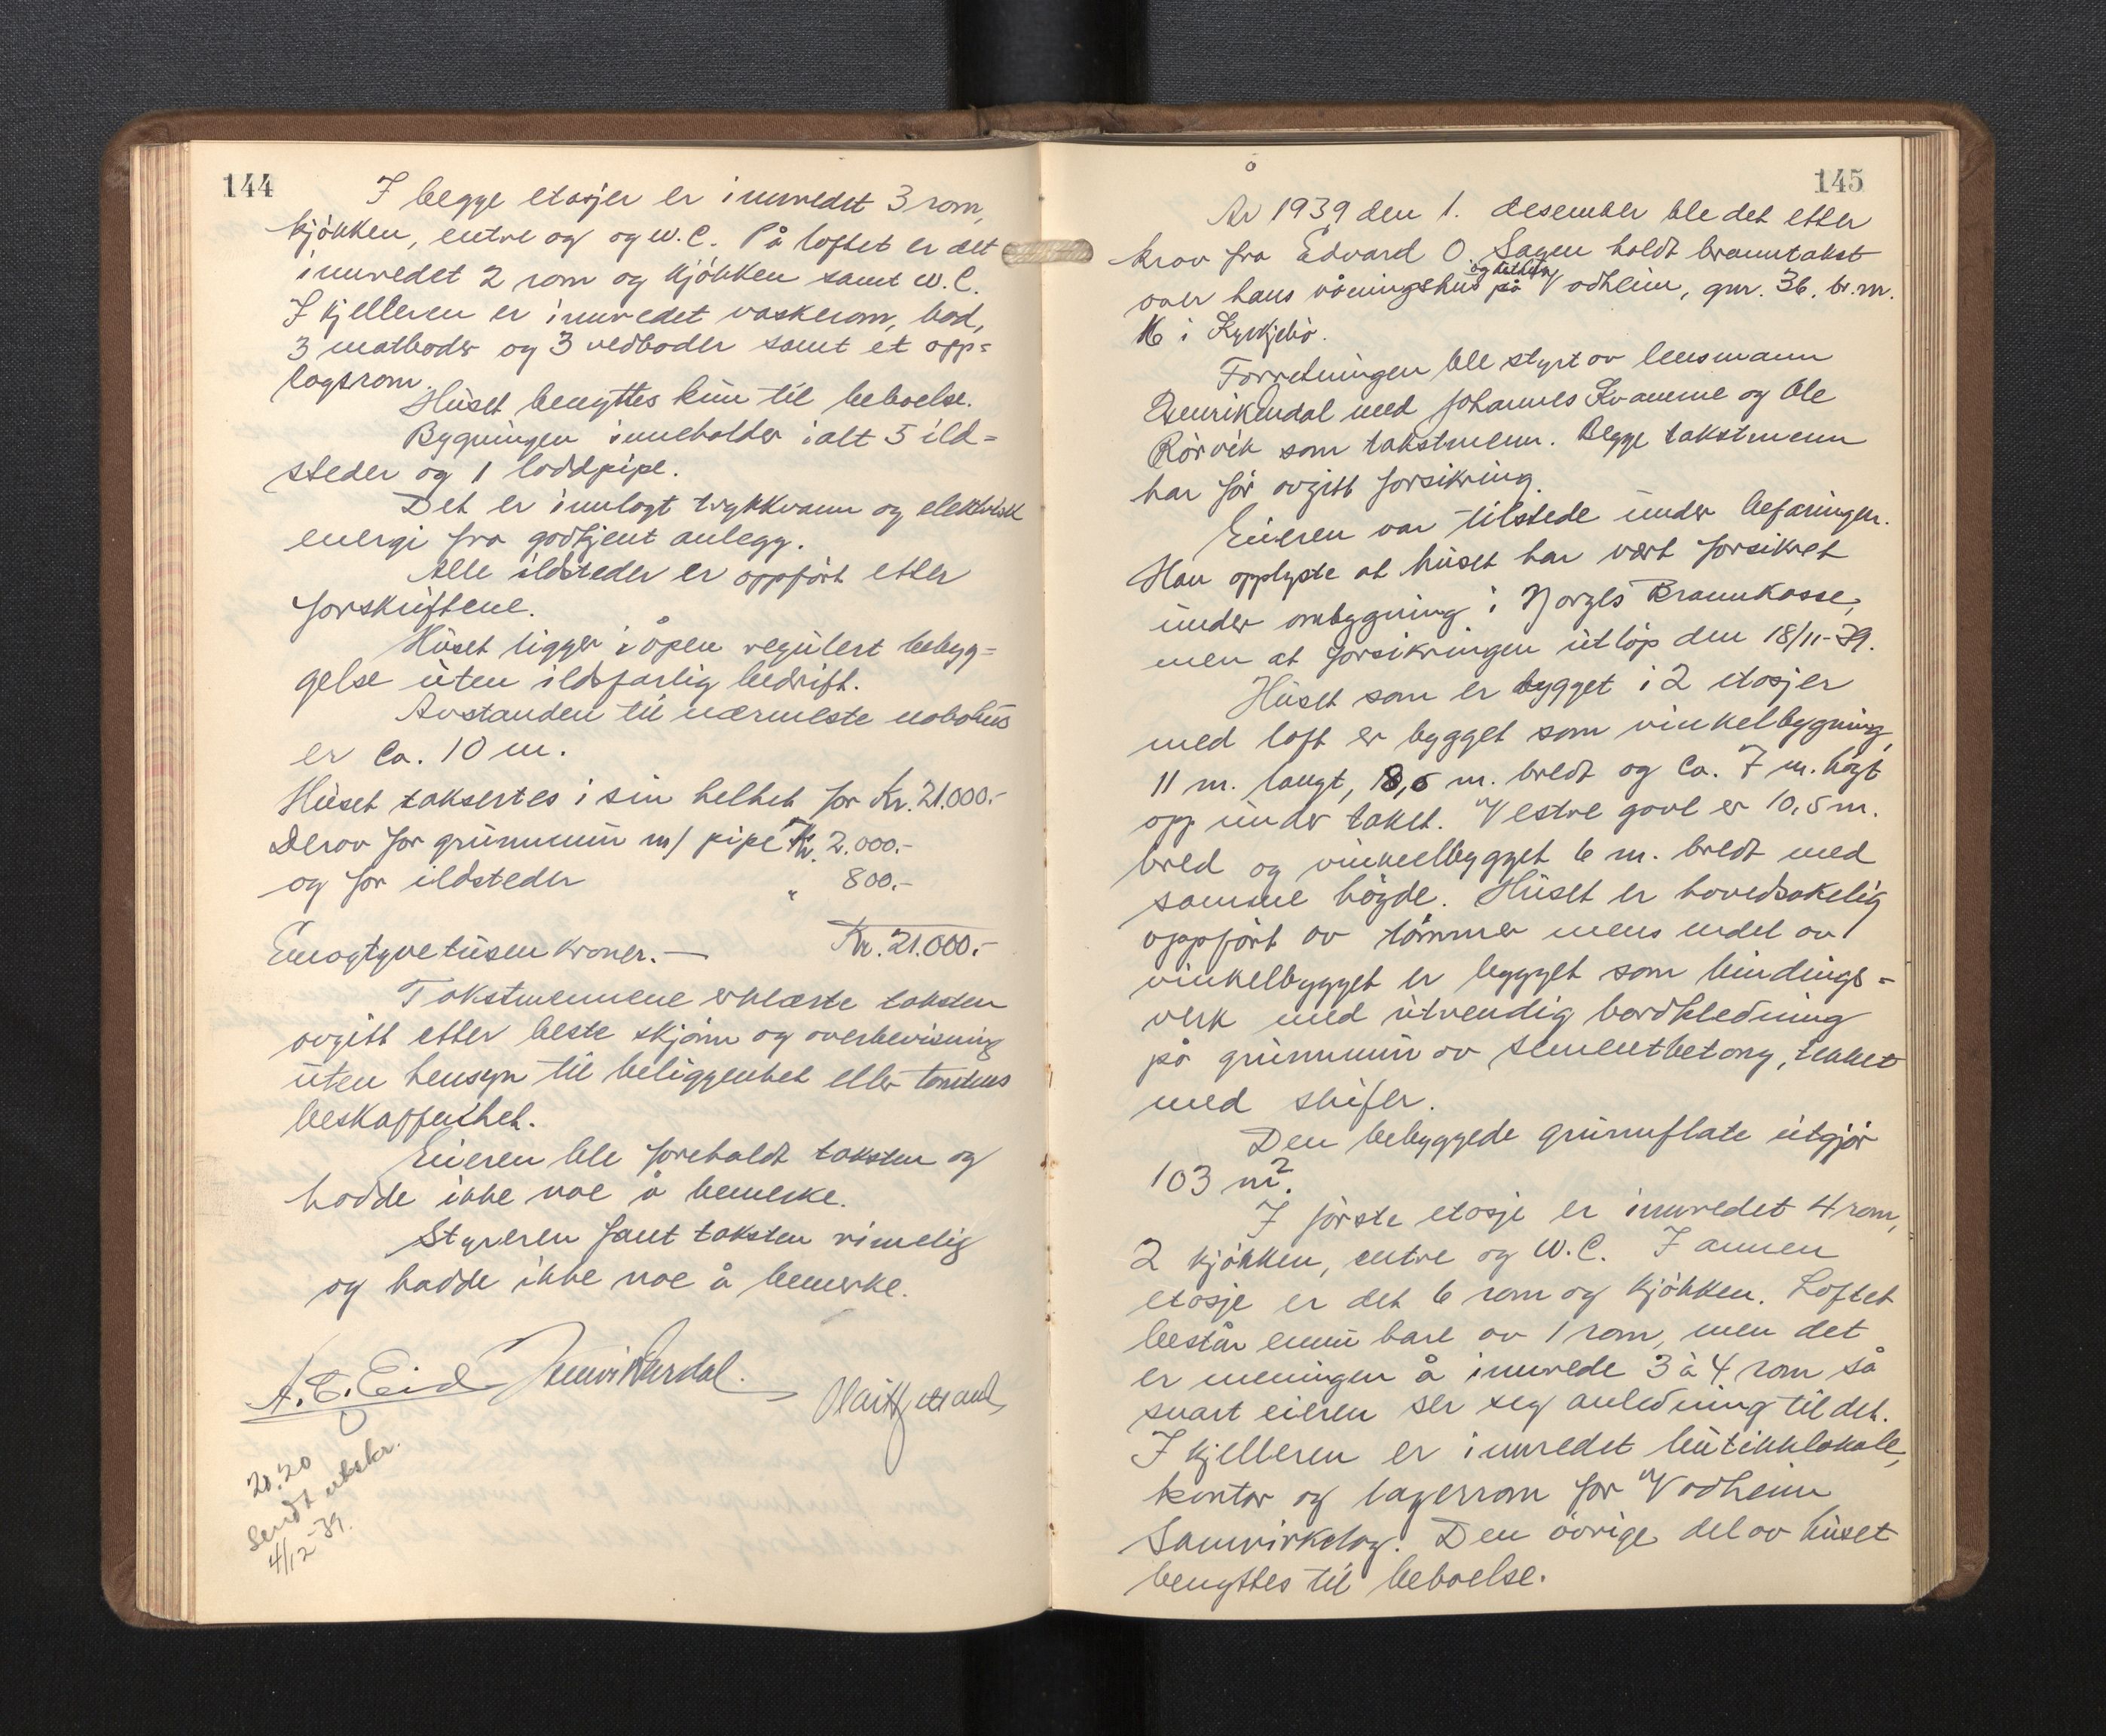 144
I begge etasjer er innredet 3 rom,
kjökken, entre og og W.C. På loftet er det
innredet 2 rom og kjökken samt W.C.
I kjelleren er innredet vaskerom, bod,
3 matboder og 3 vedboder samt et opp=
lagsrom.
Huset benyttes kun til beboelse.
Bygningen inneholder ialt 5 ild=
steder og 1 loddpipe.
Det er innlagt trykkvann og elektrisk
energi fra godkjent anlegg.
Alle ildsteder er oppfört etter
forskriftene.
Huset ligger i åpen regulert bebyg=
gelse uten ildsfarlig bedrift.
Avstanden til nærmeste nabohus
er ca. 10 m.
Huset taksertes i sin helhet for Kr. 21.000.-
Derav for grunnmur m/ pipe Kr. 2.000.-
og for ildsteder " 800.-
Enogtyvetusen kroner.— Kr. 21.000.-
Takstmennene erklærte taksten
avgitt etter beste skjönn og overbevisning
uten hensyn til beliggenhet eller tomtens
beskaffenhet.
Eieren ble foreholdt taksten og
hadde ikke noe å bemerke.
Styreren fant taksten rimelig
og hadde ikke noe å bemerke.
A. E. Eid
20.20
Sendt utskr.
4/12-39.
145
År 1939 den 1. desember ble det etter
krav fra Edvard O. Sagen holdt branntakst
over hans våningshus på Vadheim, gnr. 36, br.nr.
16 i Kyrkjebö.
Forretningen ble styrt av lensmann
Henrik Urdal med Johannes Kvamme og Ole
Rörvik som takstmenn. Begge takstmenn
har för avgitt forsikring.
Eieren var tilstede under befaringen.
Han opplyste at huset har vært forsikret
under ombygning i Norges Brannkasse,
men at forsikringen utlöp den 18/11-39.
Huset som er bygget i 2 etasjer
med loft er bygget som vinkelbygning,
11 m. langt, 8,5 m. bredt og ca. 7 m. högt
opp under taket. Vestre gavl er 10,5 m.
bred og vinkelbygget 6 m. bredt med
samme högde. Huset er hovedsakelig
oppfört av tömmer mens endel av
vinkelbygget er bygget som bindings=
verk med utvendig bordkledning
på grunnmur av sementbetong, tekket
med skifer.
Den bebyggede grunnflate utgjör
103 m².
I förste etasje er innredet 4 rom,
2 kjökken, entre og W.C. I annen
etasje er det 6 rom og kjökken. Loftet
består ennu bare av 1 rom, men det
er meningen å innrede 3 à 4 rom så
snart eieren ser seg anledning til det.
I kjelleren er innredet butikklokale,
kontor og lagerrom for Vadheim
Samvirkelag. Den övrige del av huset
benyttes til beboelse.